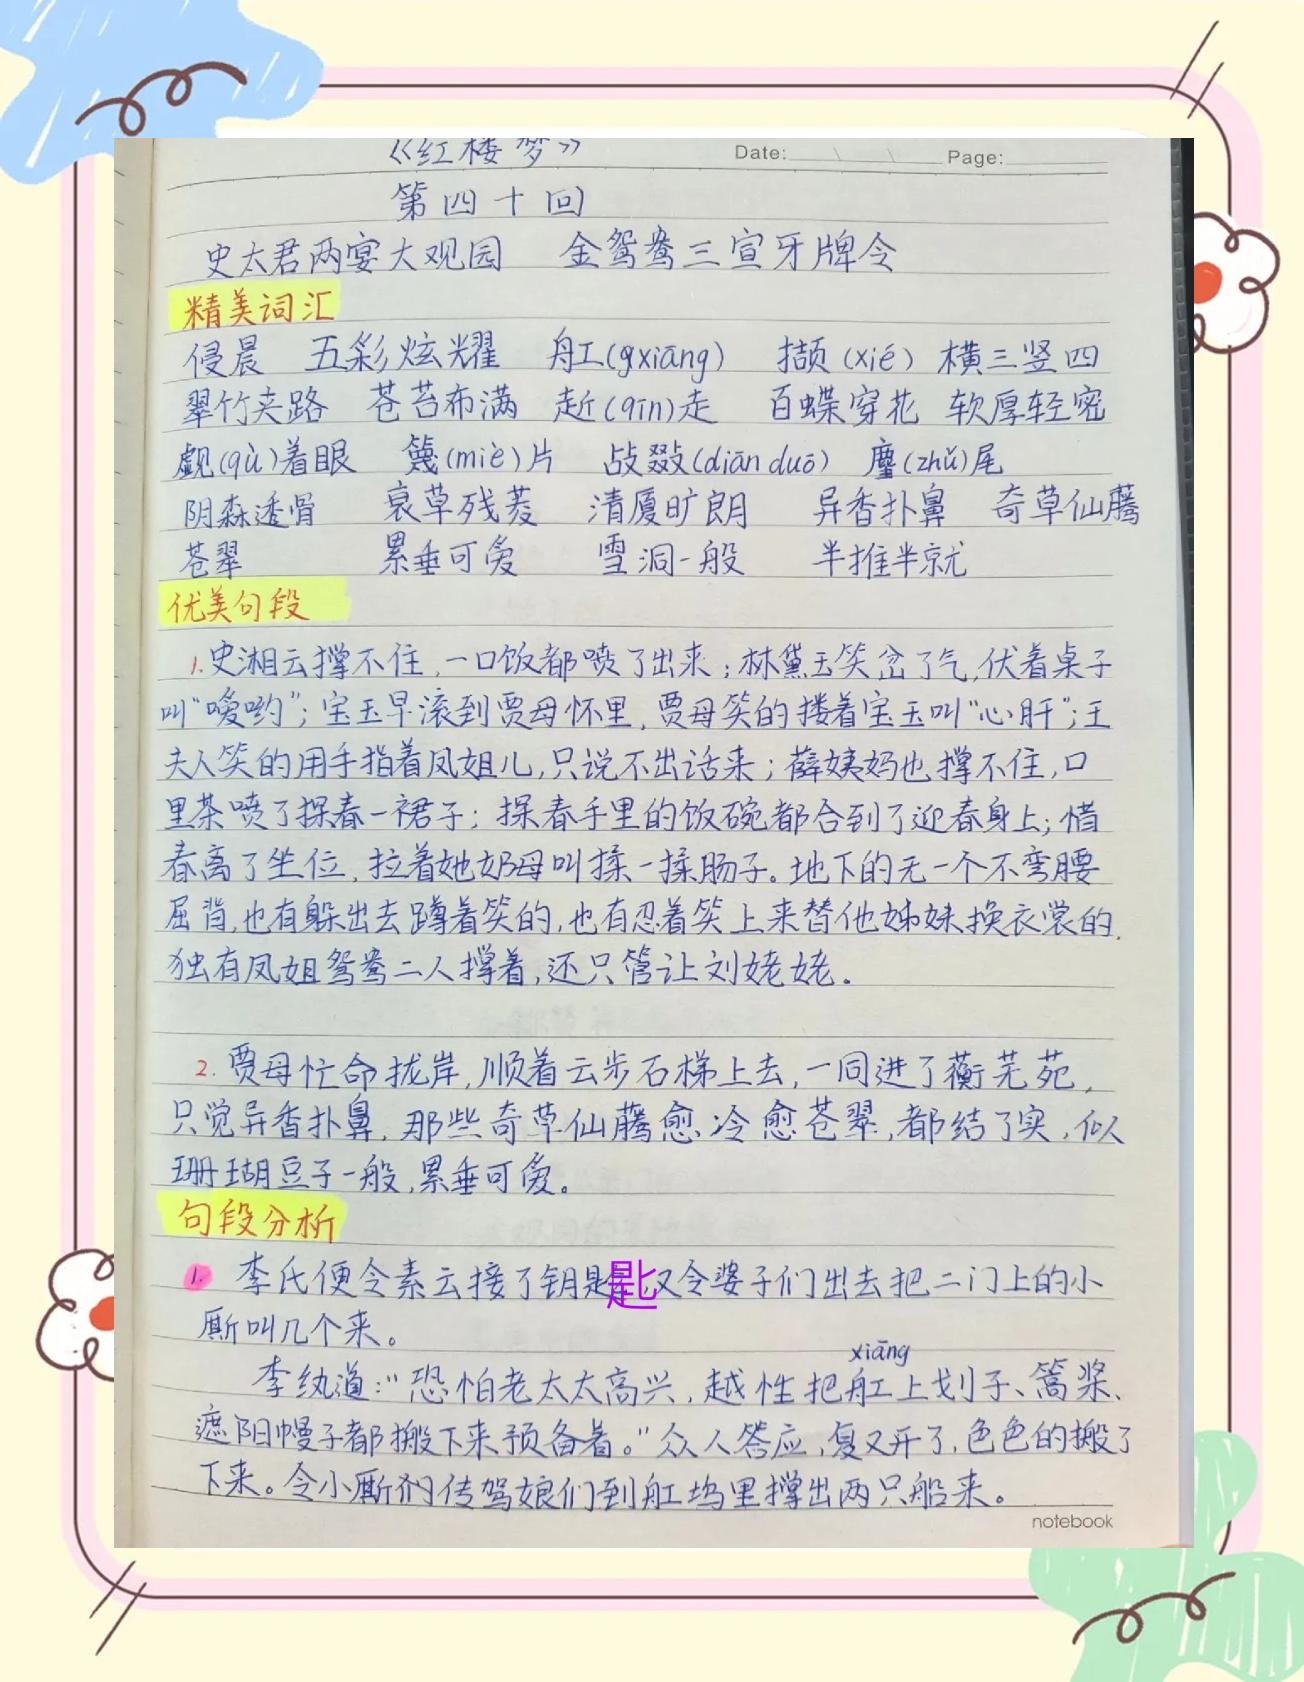 《红楼梦》 Date: Page:
第四十回
史太君两宴大观园 金鸳鸯三宣牙牌令
精美词汇
侵晨 五彩炫耀 舡(gxiāng) 撷(xié) 横三竖四
翠竹夹路 苍苔布满 趄(qīn)走 百蝶穿花 软厚轻密
觑(qù)着眼 篾(miè)片 战敠(diān duō) 麈(zhǔ)尾
阴森透骨 衰草残菱 清厦旷朗 异香扑鼻 奇草仙藤
苍翠 累垂可爱 雪洞一般 半推半就
优美句段
1.史湘云撑不住,一口饭都喷了出来;林黛玉笑岔了气,伏着桌子
叫“嗳哟”;宝玉早滚到贾母怀里,贾母笑的搂着宝玉叫“心肝”;王
夫人笑的用手指着凤姐儿,只说不出话来;薛姨妈也撑不住,口
里茶喷了探春一裙子;探春手里的饭碗都合到了迎春身上;惜
春离了坐位,拉着她奶母叫揉一揉肠子。地下的无一个不弯腰
屈背,也有躲出去蹲着笑的,也有忍着笑上来替他姊妹换衣裳的.
独有凤姐鸳鸯二人撑着,还只管让刘姥姥。
2.贾母忙命拢岸,顺着云步石梯上去,一同进了蘅芜苑,
只觉异香扑鼻,那些奇草仙藤愈冷愈苍翠,都结了实,似
珊瑚豆子一般,累垂可爱。
句段分析
1. 李氏便令素云接了钥匙,又令婆子们出去把二门上的小
厮叫几个来。
xiāng
李纨道:“恐怕老太太高兴,越性把舡上划子、篙桨、
遮阳幔子都搬下来预备着。”众人答应,复又开了,色色的搬了
下来。令小厮们传驾娘们到舡坞里撑出两只船来。
notebook